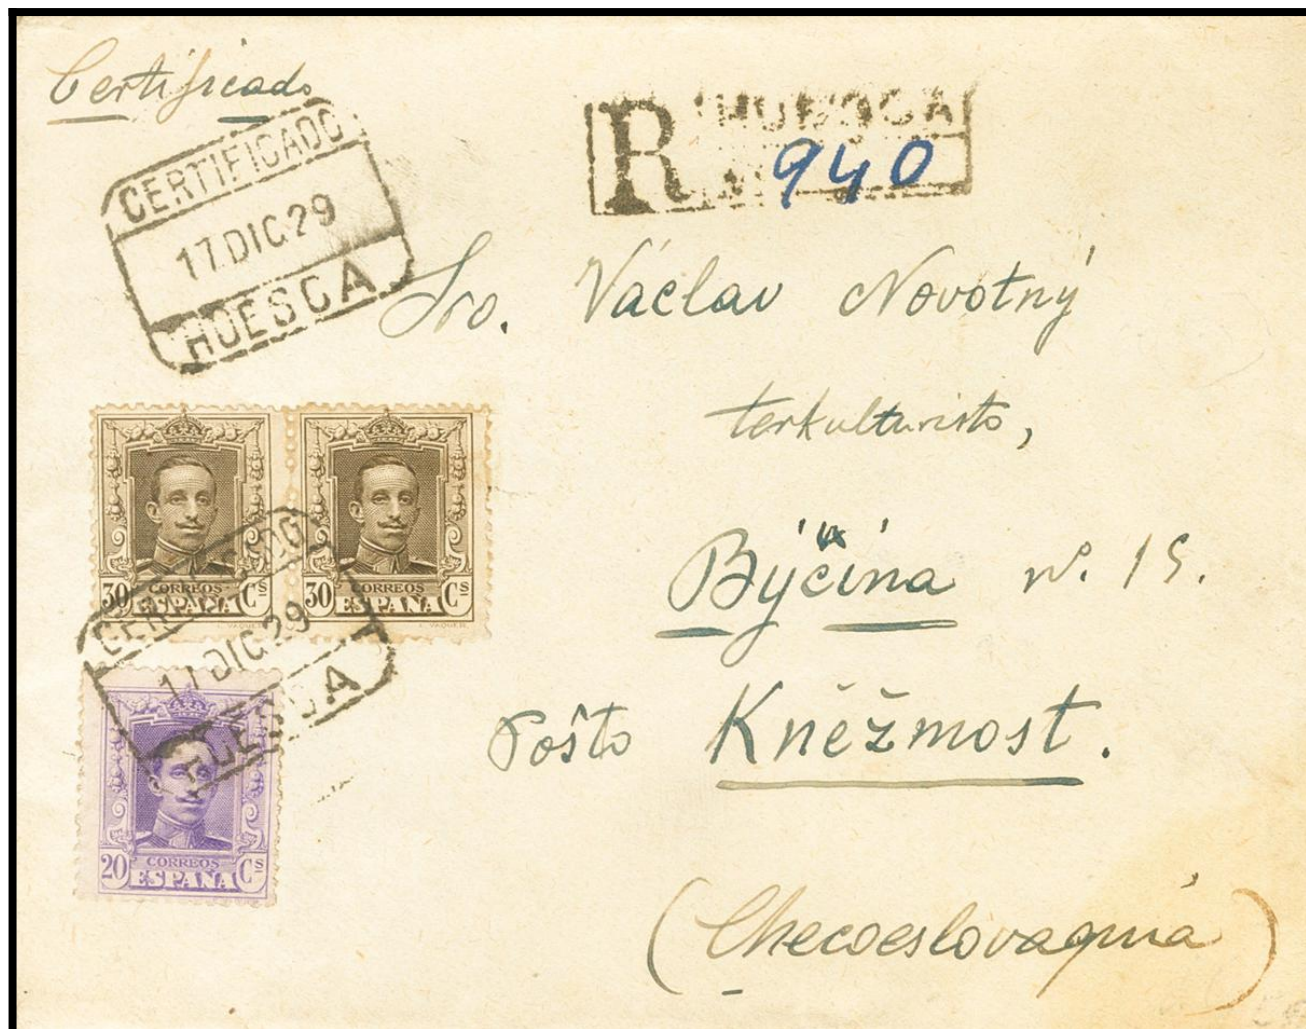 Certificado
CERTIFICADO
17.DIC.29
HUESCA
R HUESCA
940
Sro. Václav Novotný
terkulturisto,
Býčina nº. 15.
Poŝto Kněžmost.
(Checoeslovaquia)
30 CORREOS ESPAÑA Cs
30 CORREOS ESPAÑA Cs
CERTIFICADO
17 DIC 29
HUESCA
20 CORREOS ESPAÑA Cs